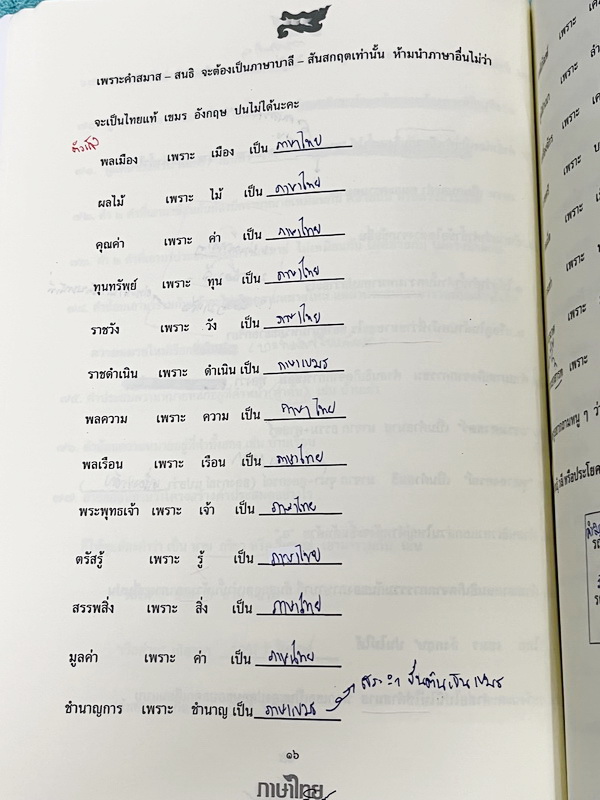 เพราะคำสมาส – สนธิ จะต้องเป็นภาษาบาลี – สันสกฤตเท่านั้น ห้ามนำภาษาอื่นไม่ว่า
จะเป็นไทยแท้ เขมร อังกฤษ ปนไม่ได้นะคะ
พลเมือง เพราะ เมือง เป็น ภาษาไทย
ผลไม้ เพราะ ไม้ เป็น ภาษาไทย
คุณค่า เพราะ ค่า เป็น ภาษาไทย
ทุนทรัพย์ เพราะ ทุน เป็น ภาษาไทย
ราชวัง เพราะ วัง เป็น ภาษาไทย
ราชดำเนิน เพราะ ดำเนิน เป็น ภาษาเขมร
พลความ เพราะ ความ เป็น ภาษาไทย
พลเรือน เพราะ เรือน เป็น ภาษาไทย
พระพุทธเจ้า เพราะ เจ้า เป็น ภาษาไทย
ตรัสรู้ เพราะ รู้ เป็น ภาษาไทย
สรรพสิ่ง เพราะ สิ่ง เป็น ภาษาไทย
มูลค่า เพราะ ค่า เป็น ภาษาไทย
ชำนาญการ เพราะ ชำนาญ เป็น ภาษาเขมร
๑๖
ภาษาไทย